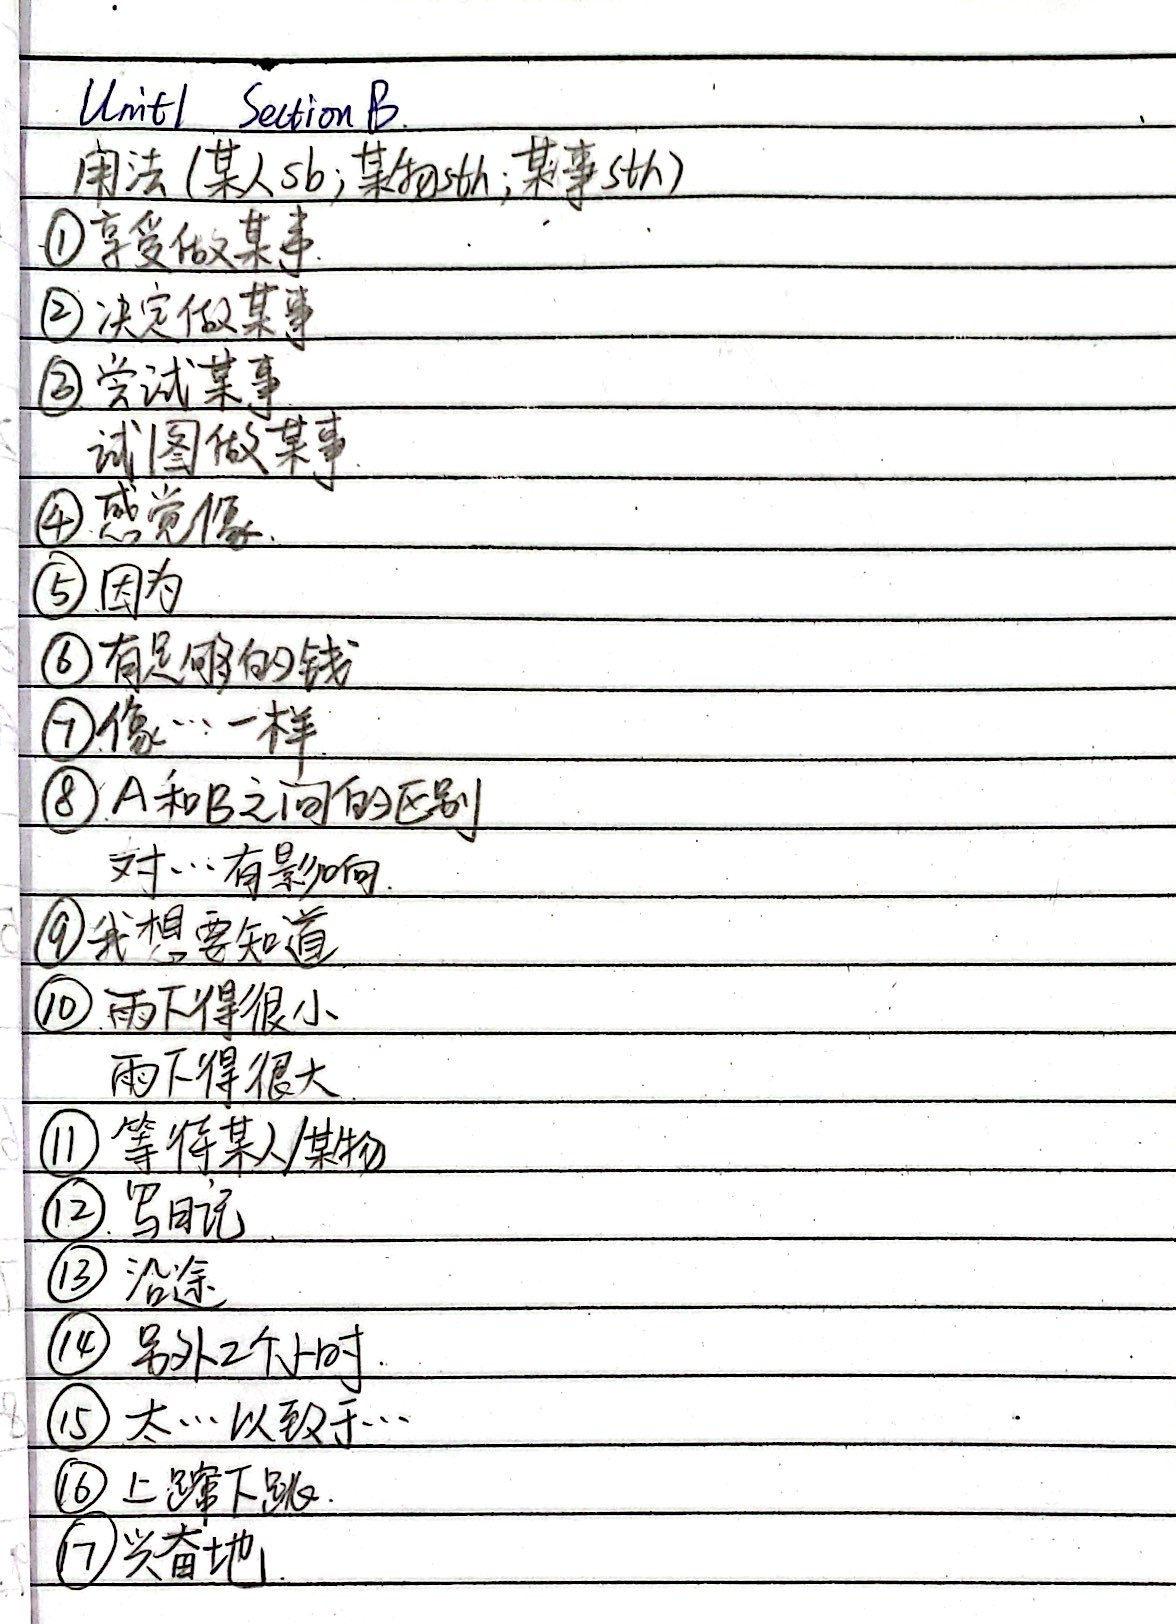 Unit1 Section B.
用法(某人sb;某物sth;某事sth)
①享受做某事.
②决定做某事
③尝试某事.
试图做某事.
④感觉像.
⑤因为
⑥有足够的钱
⑦像…一样.
⑧A和B之间的区别
对…有影响.
⑨我想要知道
⑩雨下得很小
雨下得很大.
⑪等待某人/某物
⑫写日记.
⑬沿途
⑭另外2个小时.
⑮太…以致于…
⑯上蹿下跳.
⑰兴奋地.